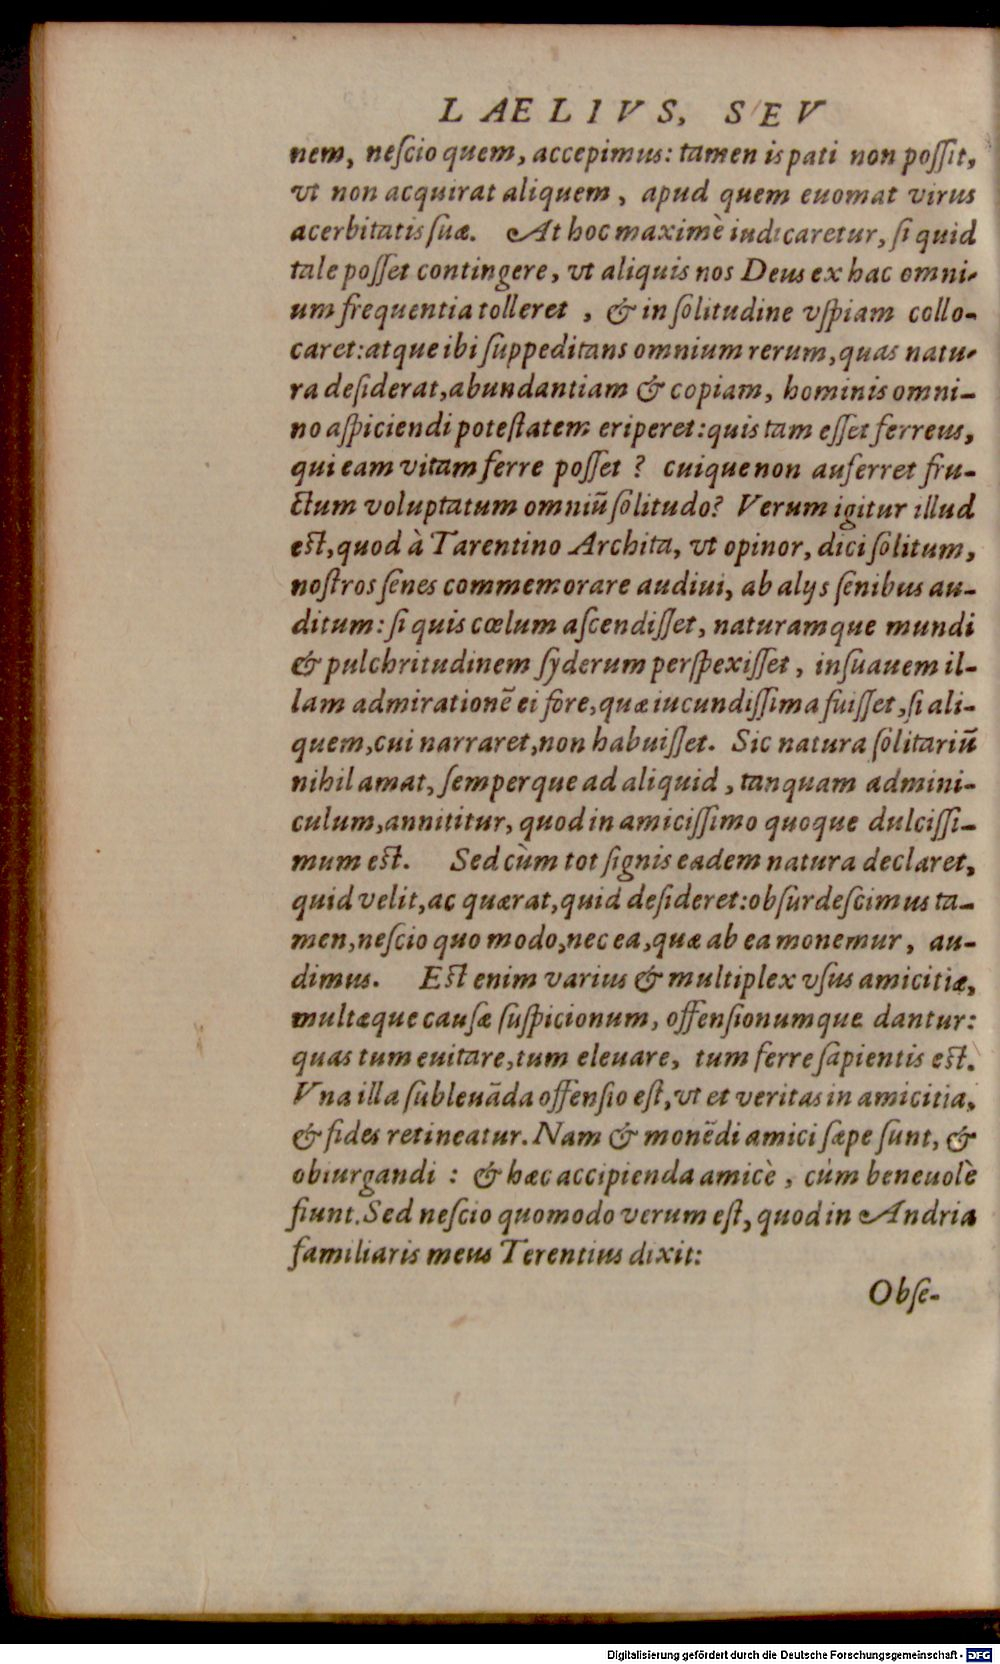 LAELIVS, SEV
nem, neſcio quem, accepimus: tamen is pati non poſſit,
vt non acquirat aliquem, apud quem euomat virus
acerbitatis ſuæ. At hoc maximè iudicaretur, ſi quid
tale poſſet contingere, vt aliquis nos Deus ex hac omni-
um frequentia tolleret, & in ſolitudine vſpiam collo-
caret: atque ibi ſuppeditans omnium rerum, quas natu-
ra deſiderat, abundantiam & copiam, hominis omni-
no aſpiciendi poteſtatem eriperet: quis tam eſſet ferreus,
qui eam vitam ferre poſſet? cuique non auferret fru-
ctum voluptatum omniũ ſolitudo? Verum igitur illud
eſt, quod à Tarentino Archita, vt opinor, dici ſolitum,
noſtros ſenes commemorare audiui, ab alijs ſenibus au-
ditum: ſi quis cœlum aſcendiſſet, naturamque mundi
& pulchritudinem ſyderum perſpexiſſet, inſuauem il-
lam admirationẽ ei fore, quæ iucundiſſima fuiſſet, ſi ali-
quem, cui narraret, non habuiſſet. Sic natura ſolitariũ
nihil amat, ſemperque ad aliquid, tanquam admini-
culum, annititur, quod in amiciſſimo quoque dulciſſi-
mum eſt. Sed cùm tot ſignis eadem natura declaret,
quid velit, ac quærat, quid deſideret: obſurdeſcimus ta-
men, neſcio quo modo, nec ea, quæ ab ea monemur, au-
dimus. Eſt enim varius & multiplex vſus amicitiæ,
multæque cauſæ ſuſpicionum, offenſionumque dantur:
quas tum euitare, tum eleuare, tum ferre ſapientis eſt.
Vna illa ſubleuãda offenſio eſt, vt et veritas in amicitia,
& fides retineatur. Nam & monẽdi amici ſæpe ſunt, &
obiurgandi: & hæc accipienda amicè, cùm beneuolè
fiunt. Sed neſcio quomodo verum eſt, quod in Andria
familiaris meus Terentius dixit:
Obſe-
Digitalisierung gefördert durch die Deutsche Forschungsgemeinschaft - DFG